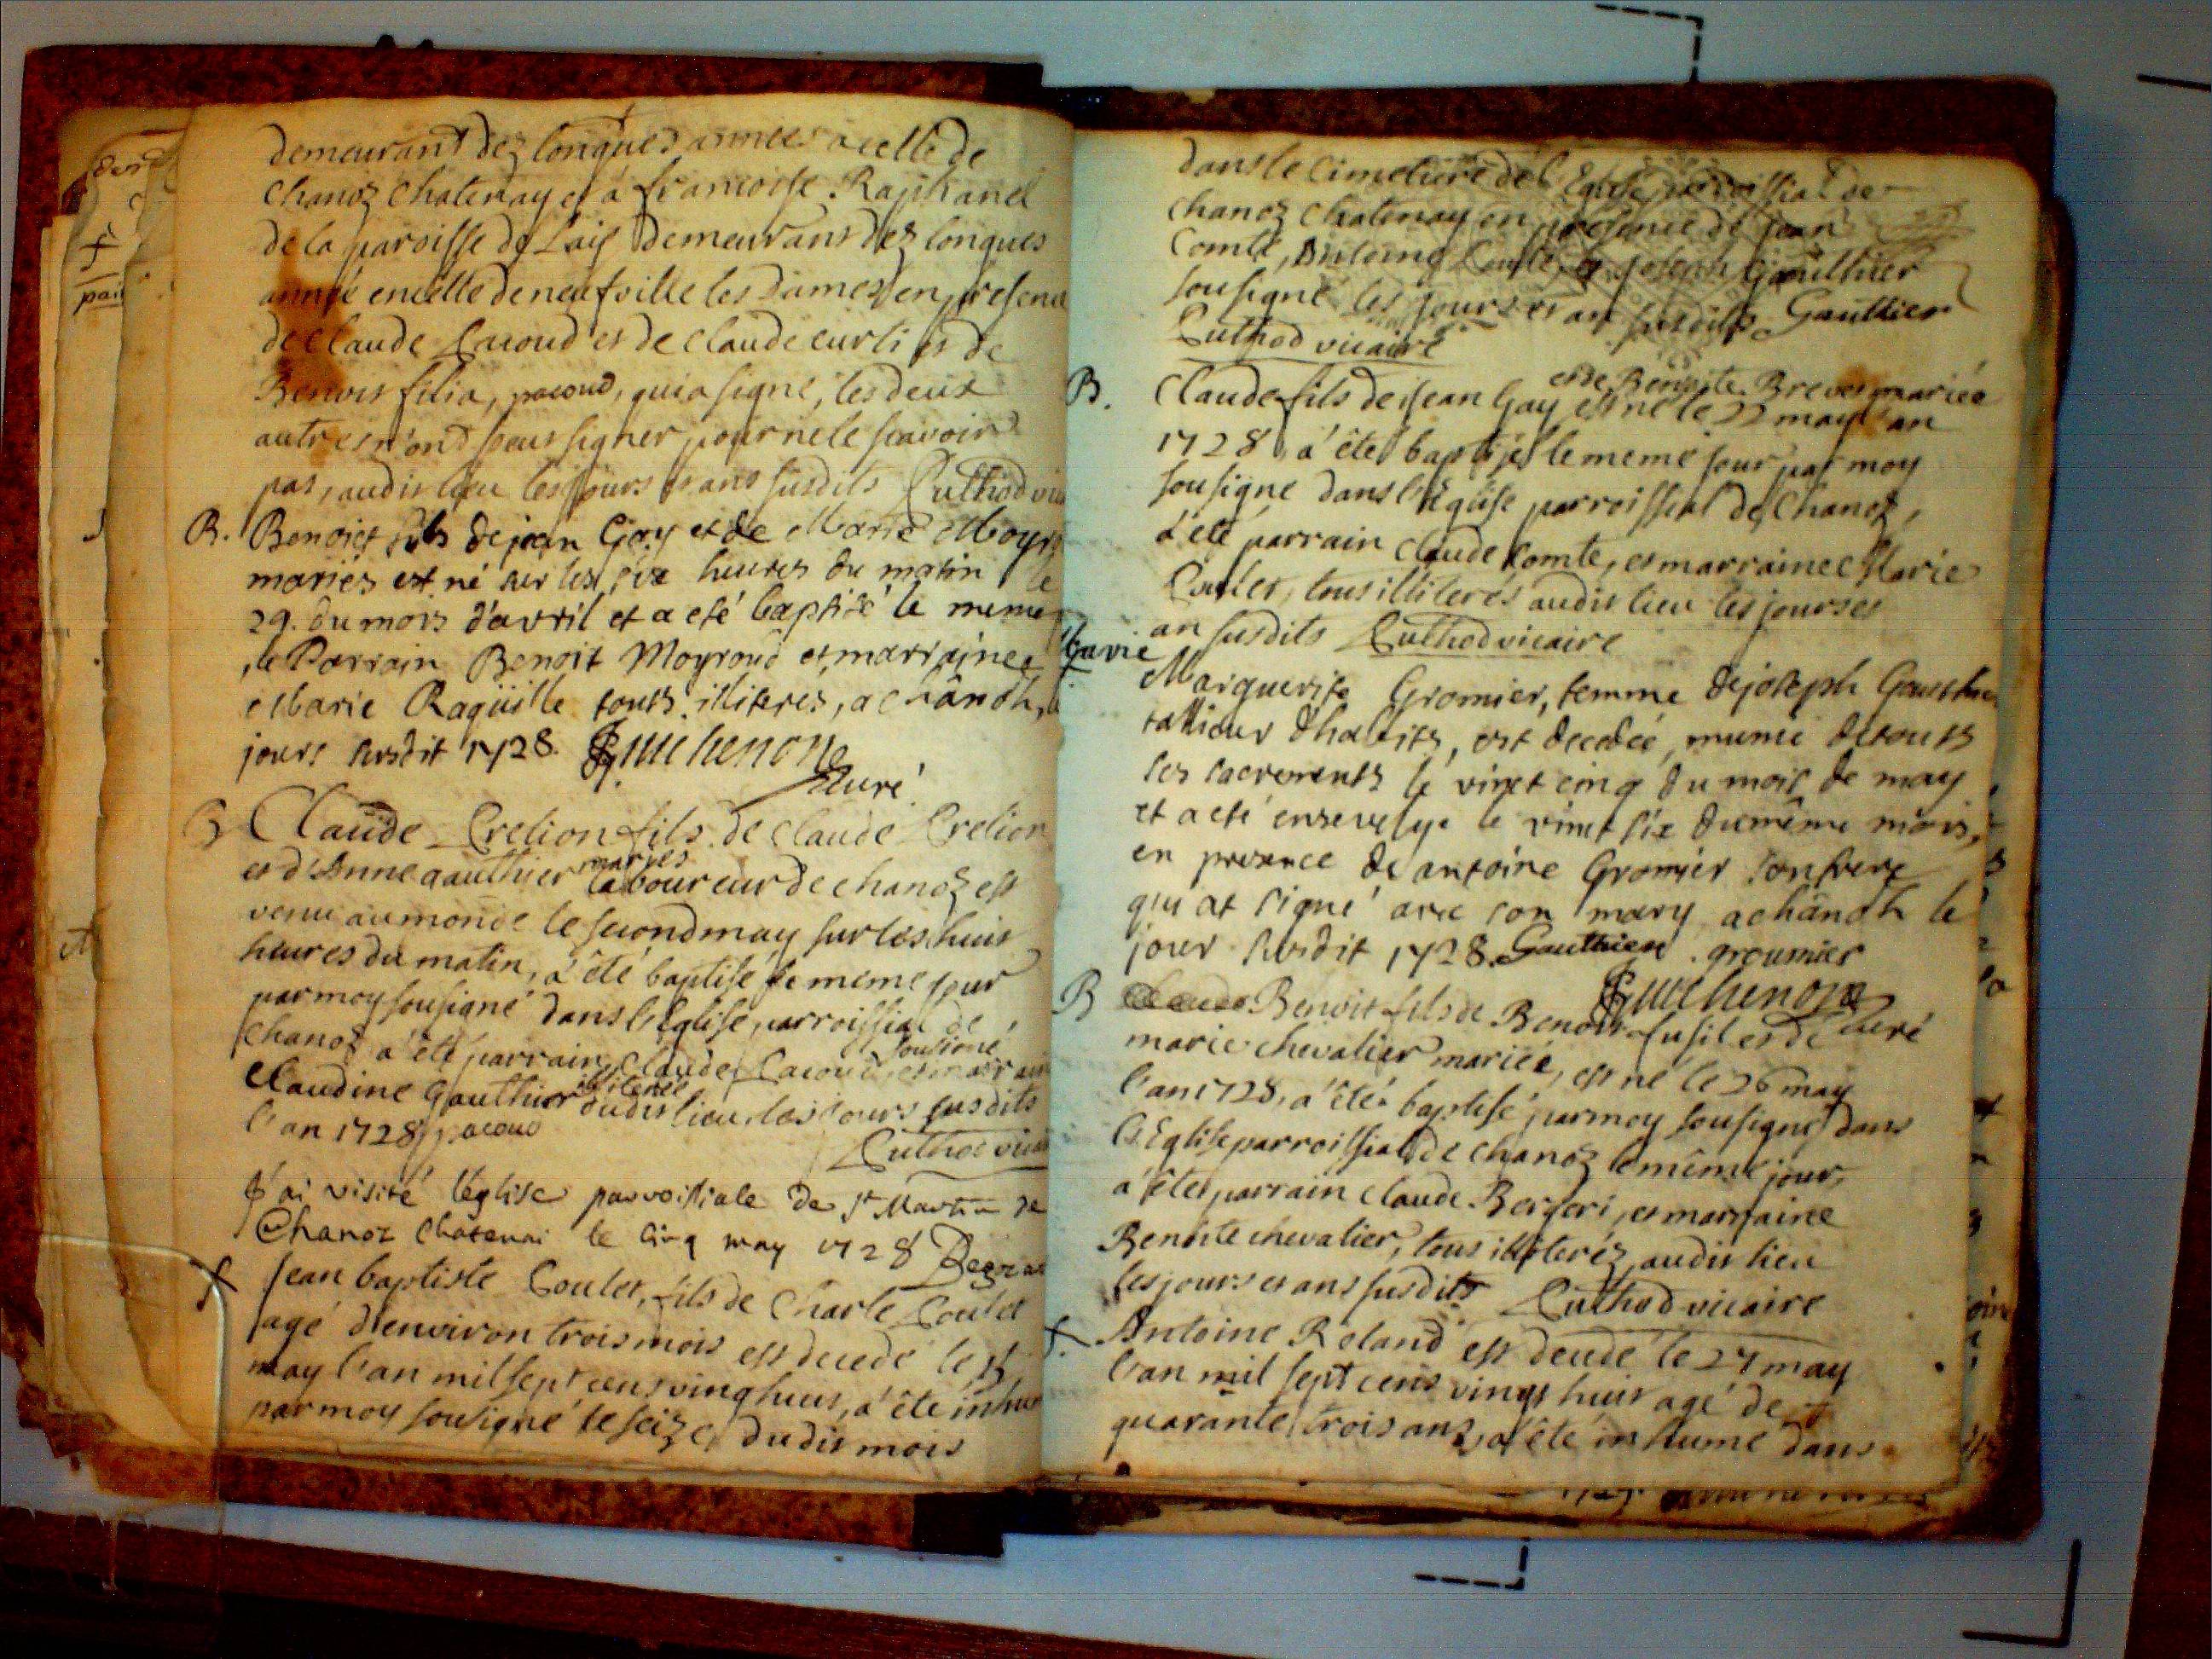 demeurant dez longues années a celle de
Chanoz Chatenay et à francoise Raphanel
de la paroisse de Lais demeurant dez longues
année en celle de neufville les Dames en presence
de Claude Pacoud et de Claude curti et de
Benoit filia, pacoud, qui a signé, les deux
autres n'ond peus signer pour ne le scavoir
pas, audit lieu les jours et ans susdits Cuthod
B. Benoist fils de jean Gay et de Marie Moyr
mariés est né sur les six heures du matin le
29. du mois d'avril et a eté baptisé le meme
, le Parrain Benoit Moyroud et marraine
Marie Raquille touts illiterés, a chanoth,
jours susdit 1728.
Curé
B Claude Crelion fils de Claude Crelion
et d'Anne gauthier mariés laboureur de chanoz est
venu au monde le second may sur les huit
heures du matin, a'été baptisé le meme jour
par moy sousigné dans l'Eglise parroissial de
Chanoz a'été parrain Claude Pacoud sousigné et marraine
Claudine Gauthier illiterée audit lieu les jours susdits
l'an 1728 pacoud
Cuthod
J'ai visité l'église parroissiale de St Martin de
Chanoz Chatenai le cinq may 1728
Jean baptiste Goulet, fils de Charle Goulet
agé d'environ trois mois est decedé le
may l'an mil sept cens ving huit, a'été
par moy sousigné le seize dudit mois
dans le Cimetiere de l'Eglise parroissial de
chanoz Chatenay en presence de jean
Comte, Antoine et joseph Gauthier
sousigné les jours et an susdits Gauthier
Cuthod vicaire
B. Claude fils de Jean Gay et de Benoite Brevet mariée est né le 22 may l'an
1728, a'été baptisé le meme jour par moy
sousigné dans l'Eglise parroissial de Chanoz,
a'été parrain Claude Comte, et marraine Marie
tous illiterés audit lieu les jours et
an susdits Cuthod vicaire
Marguerite Gromier, femme de joseph Gauthier
tallieur d'habits, est decedée, munie de touts
ses sacrements le vinct cinq du mois de may
et a eté ensevelye le vinct six du même mois,
en presence de antoine Gromier son frere
qui at signé avec son mary a chanoth le
jour susdit 1728. Gauthier. groumier
Curé
B Benoit fils de Benoit fusil et de
marie chevalier mariée, est né le 26 may
l'an 1728, a'été baptisé par moy sousigné dans
l'Eglise parroissial de Chanoz le même jour,
a'été parrain Claude Bergeri, et marraine
Benoite chevalier, tous illiteréz audit lieu
les jours et ans susdits Cuthod vicaire
Antoine Roland est decedé le 27 may
l'an mil sept cens vingt huit agé de
quarante trois ans, a'été inhumé dans